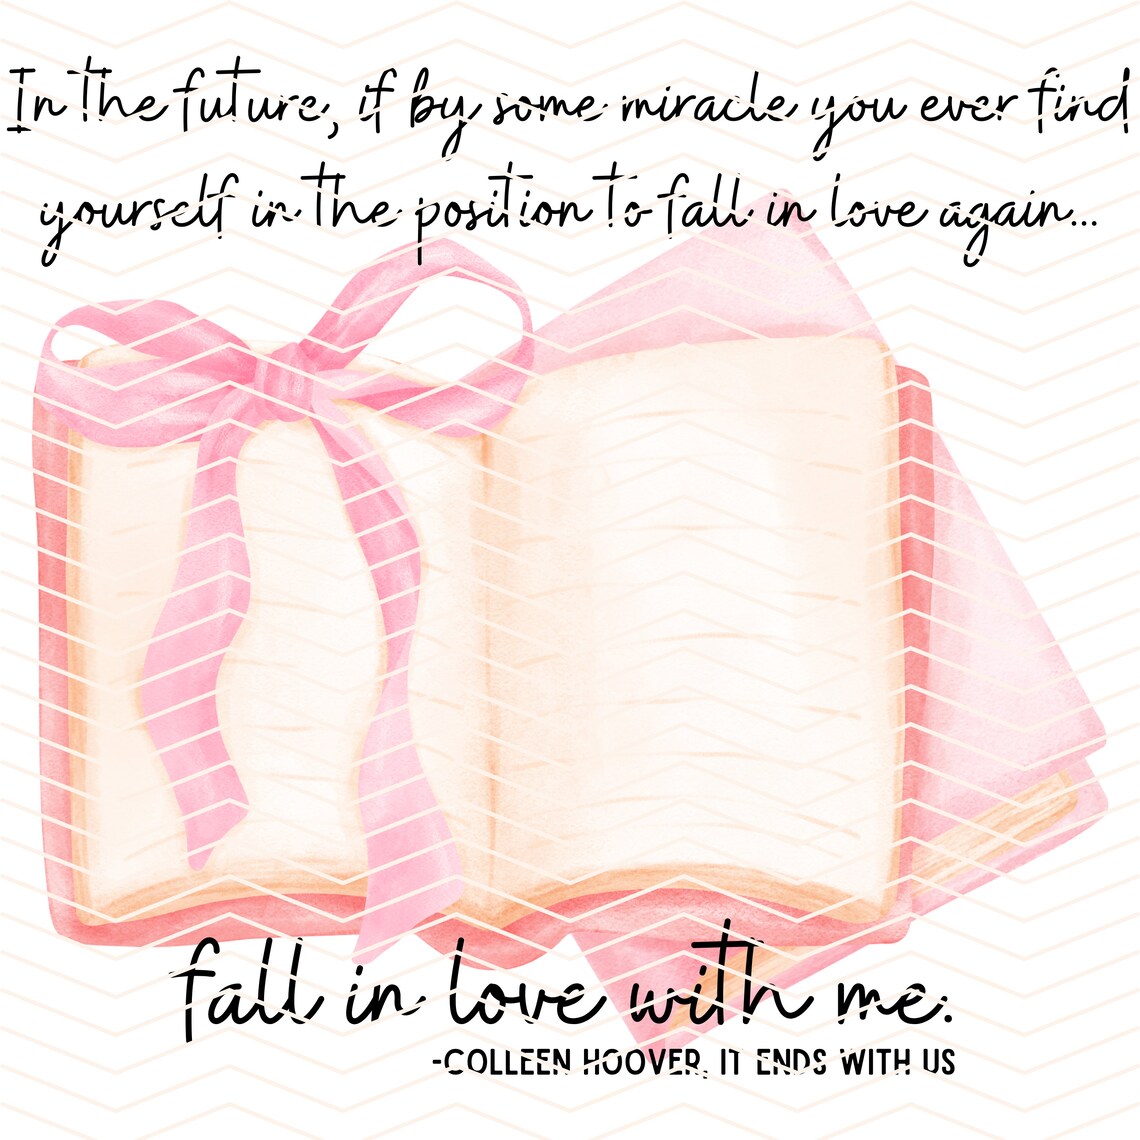 In the future, if by some miracle you ever find
yourself in the position to fall in love again...
fall in love with me.
-COLLEEN HOOVER, IT ENDS WITH US